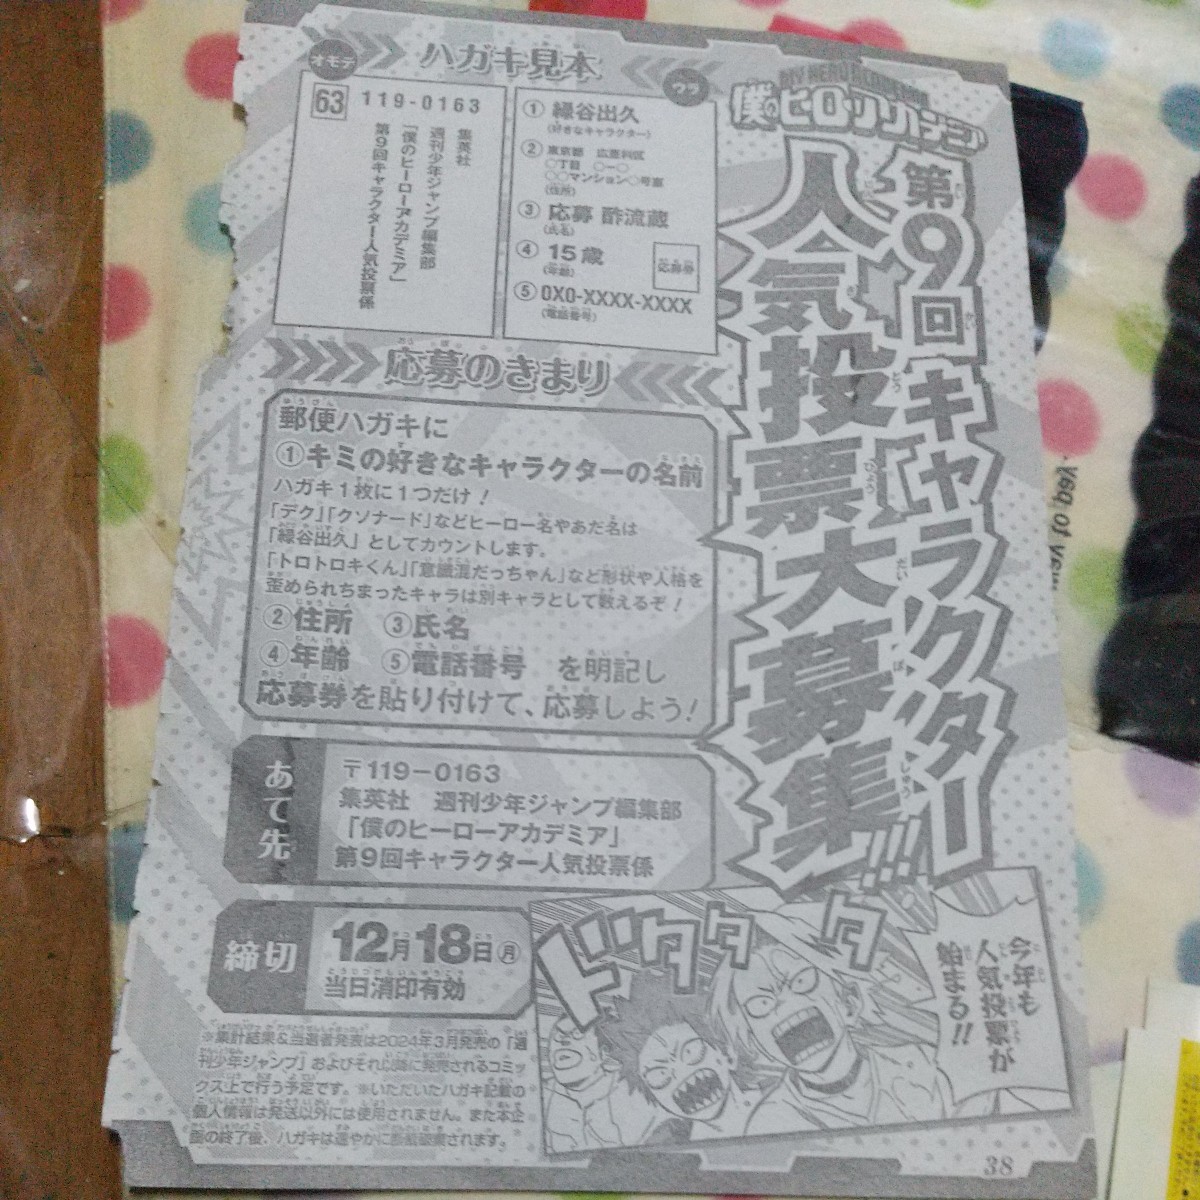 MY HERO ACADEMIA
僕のヒーローアカデミア
第9回キャラクター
人気投票大募集!!!
ハガキ見本
オモテ
63
119-0163
集英社
週刊少年ジャンプ編集部
「僕のヒーローアカデミア」
第9回キャラクター人気投票係
ウラ
① 緑谷出久
(好きなキャラクター)
② 東京都
○丁目 ○-○
○○マンション○号室
(住所)
③ 応募 酢流蔵
(氏名)
④ 15歳
(年齢)
応募券
⑤ 0X0-XXXX-XXXX
(電話番号)
応募のきまり
郵便ハガキに
①キミの好きなキャラクターの名前
ハガキ1枚に1つだけ!
「デク」「クソナード」などヒーロー名やあだ名は
「緑谷出久」としてカウントします。
「トロトロキくん」「意識混だっちゃん」など形状や人格を
歪められちまったキャラは別キャラとして数えるぞ!
②住所 ③氏名
④年齢 ⑤電話番号 を明記し
応募券を貼り付けて、応募しよう!
あて先
〒119-0163
集英社 週刊少年ジャンプ編集部
「僕のヒーローアカデミア」
第9回キャラクター人気投票係
締切
12月18日(月)
当日消印有効
※集計結果&当選者発表は2024年3月発売の「週
刊少年ジャンプ」およびそれ以降に発売されるコミッ
クス上で行う予定です。※いただいたハガキ記載の
個人情報は発送以外には使用されません。また本企
画の終了後、ハガキは速やかに断裁破棄されます。
ドタタタ
今年も
人気投票が
始まる!!
38